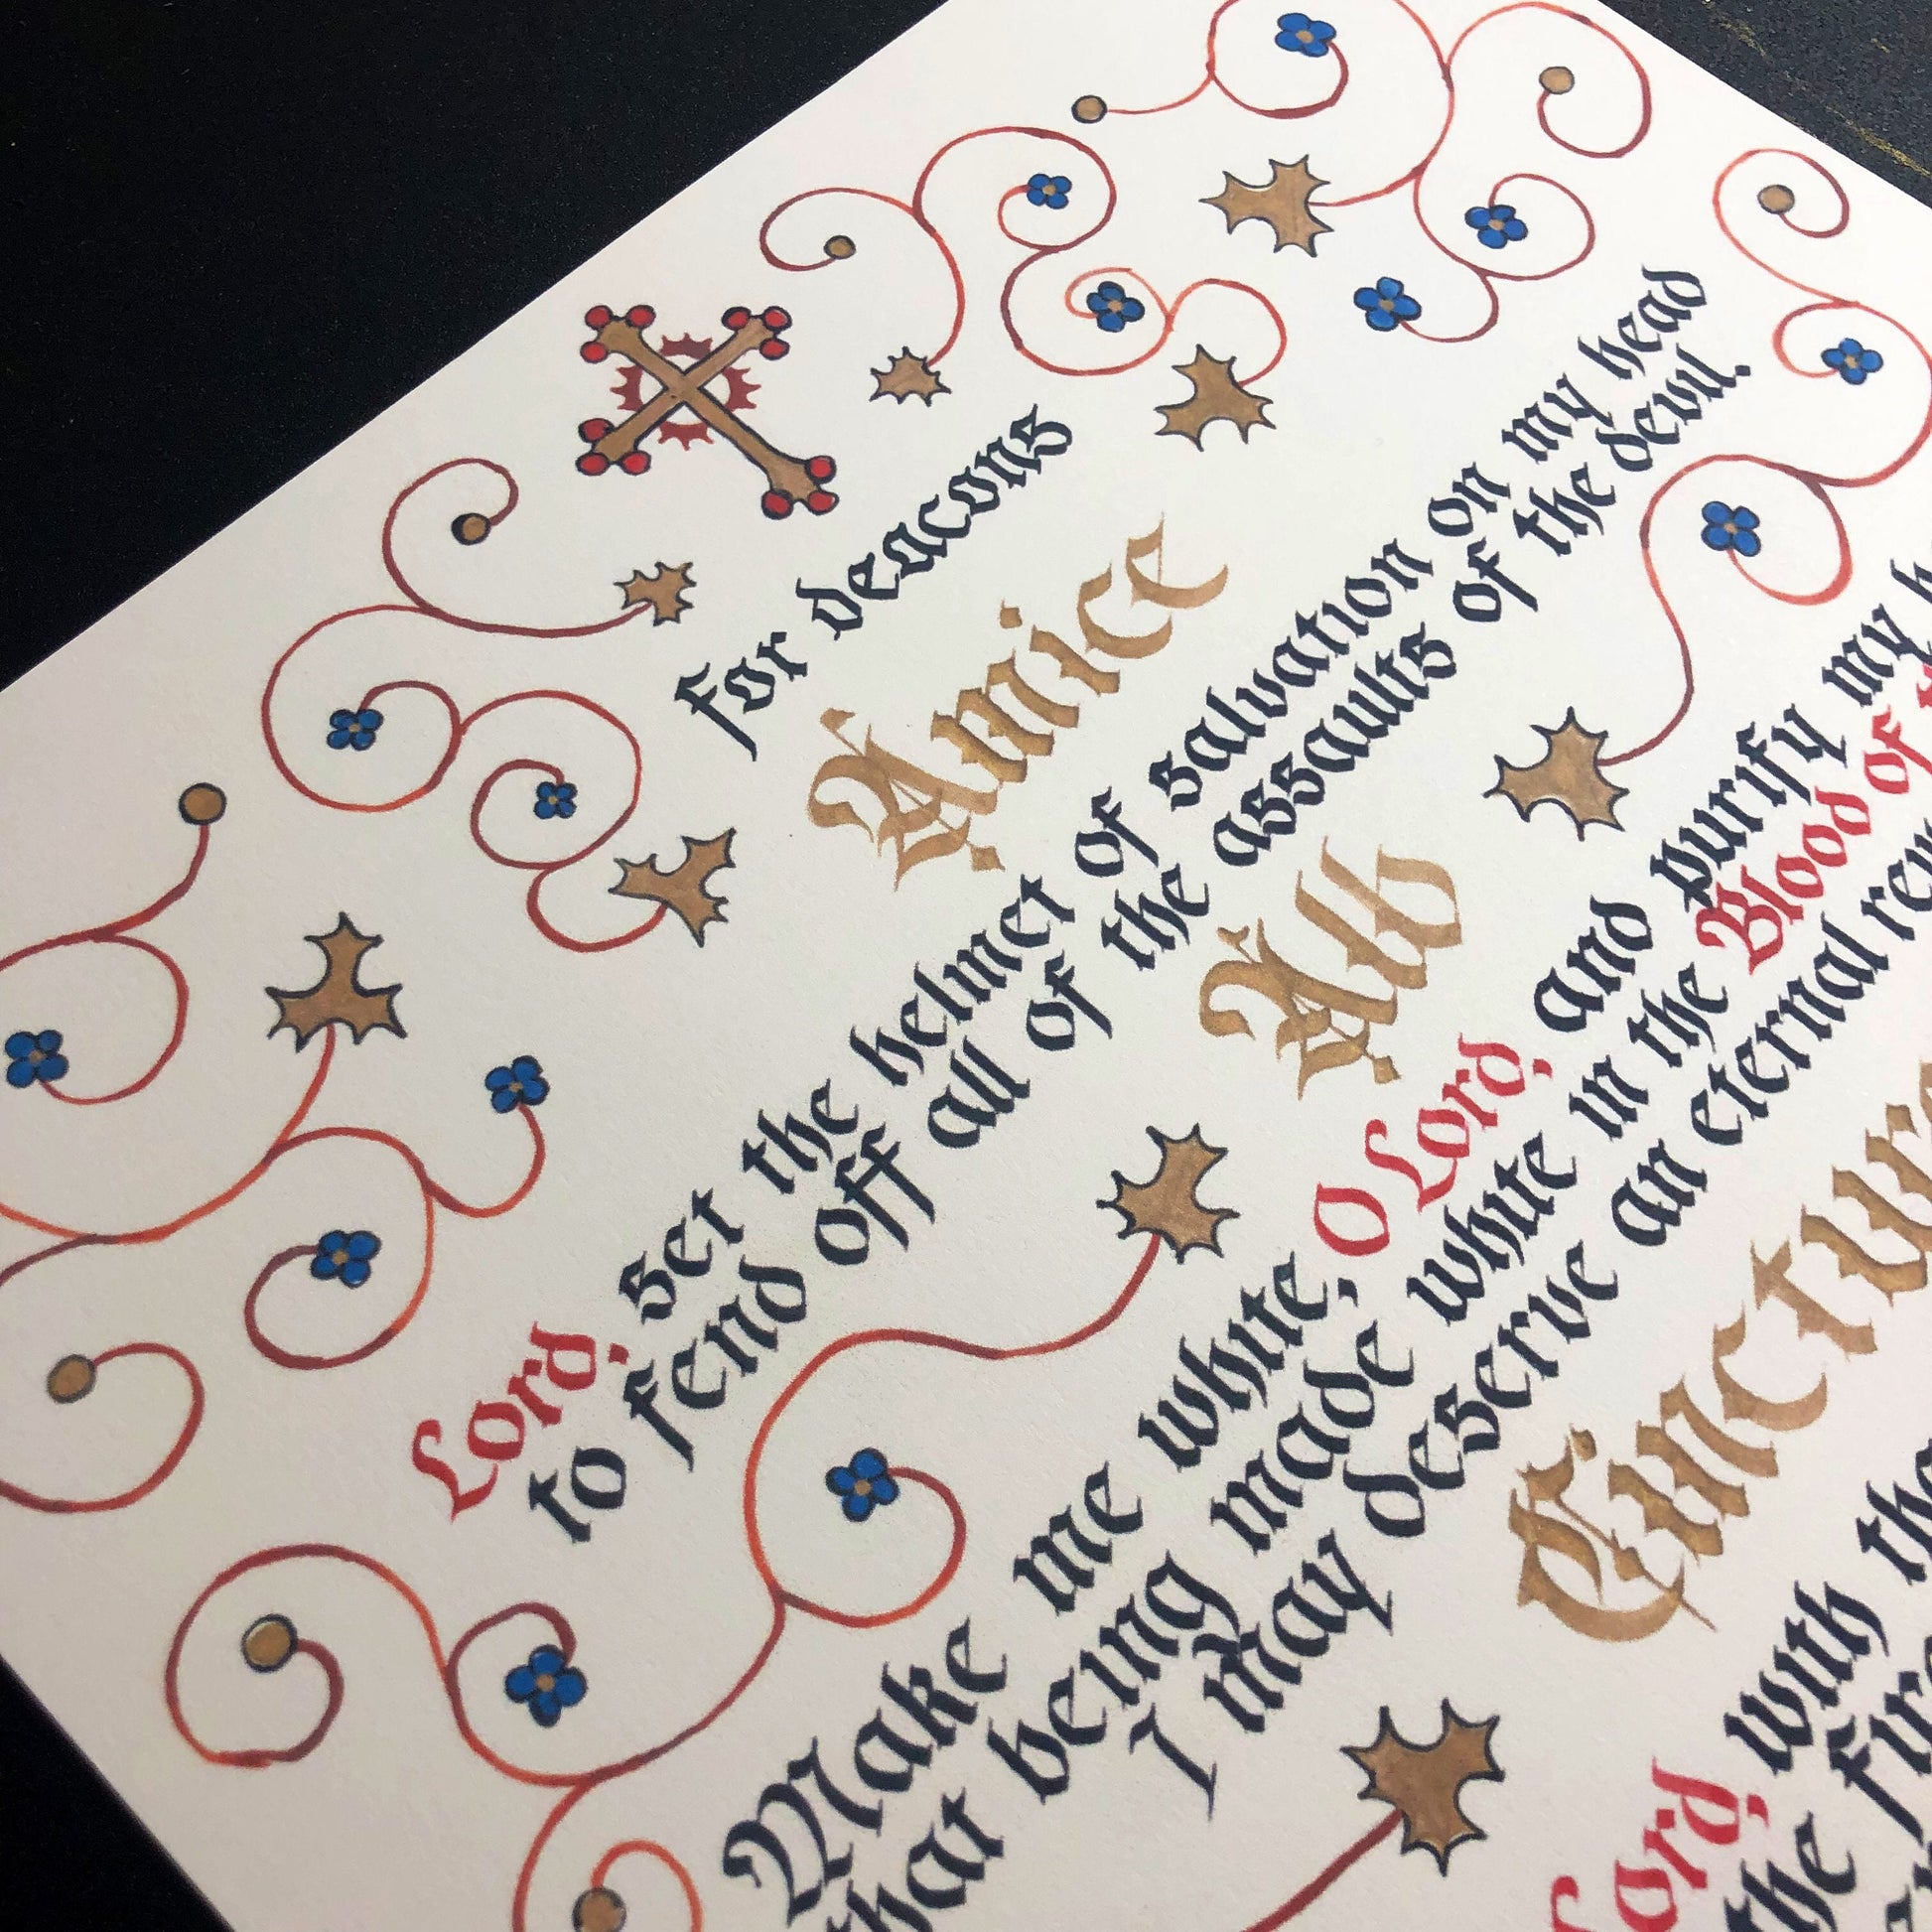 For deacons
Amice
Lord, set the helmet of salvation on my head
to fend off all of the assaults of the devil.
Alb
Make me white, O Lord, and purify my
that being made white in the Blood of
I may deserve an eternal
Cincture
Lord, with
the